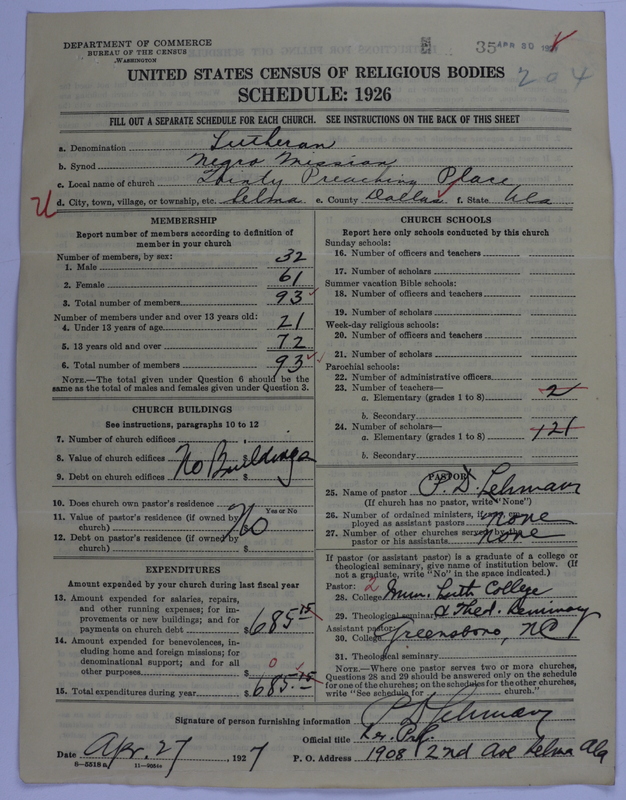 DEPARTMENT OF COMMERCE
BUREAU OF THE CENSUS
WASHINGTON
35 APR 30 192
204
UNITED STATES CENSUS OF RELIGIOUS BODIES
SCHEDULE: 1926
FILL OUT A SEPARATE SCHEDULE FOR EACH CHURCH. SEE INSTRUCTIONS ON THE BACK OF THIS SHEET
a. Denomination Lutheran
b. Synod Negro Mission
c. Local name of church Trinity Preaching Place
d. City, town, village, or township, etc. Selma e. County Dallas f. State Ala
MEMBERSHIP
Report number of members according to definition of
member in your church
Number of members, by sex:
1. Male 32
2. Female 61
3. Total number of members 93
Number of members under and over 13 years old:
4. Under 13 years of age 21
5. 13 years old and over 72
6. Total number of members 93
NOTE.—The total given under Question 6 should be the
same as the total of males and females given under Question 3.
CHURCH BUILDINGS
See instructions, paragraphs 10 to 12
7. Number of church edifices
8. Value of church edifices $ No Buildings
9. Debt on church edifices $
10. Does church own pastor's residence No Yes or No
11. Value of pastor's residence (if owned by
church) $
12. Debt on pastor's residence (if owned by
church) $
EXPENDITURES
Amount expended by your church during last fiscal year
13. Amount expended for salaries, repairs,
and other running expenses; for im-
provements or new buildings; and for
payments on church debt $ 685.15
14. Amount expended for benevolences, in-
cluding home and foreign missions; for
denominational support; and for all
other purposes $ 0
15. Total expenditures during year $ 685.15
CHURCH SCHOOLS
Report here only schools conducted by this church
Sunday schools:
16. Number of officers and teachers
17. Number of scholars
Summer vacation Bible schools:
18. Number of officers and teachers
19. Number of scholars
Week-day religious schools:
20. Number of officers and teachers
21. Number of scholars
Parochial schools:
22. Number of administrative officers
23. Number of teachers—
a. Elementary (grades 1 to 8) 2
b. Secondary
24. Number of scholars—
a. Elementary (grades 1 to 8) 121
b. Secondary
PASTOR
25. Name of pastor P. D. Lehman
(If church has no pastor, write "None")
26. Number of ordained ministers, if any, em-
ployed as assistant pastors none
27. Number of other churches served by the
pastor or his assistants none
If pastor (or assistant pastor) is a graduate of a college or
theological seminary, give name of institution below. (If
not a graduate, write "No" in the space indicated.)
Pastor: 2
28. College Imm. Luth College
29. Theological seminary & Theol. Seminary
Assistant pastor:
30. College Greensboro, NC
31. Theological seminary
NOTE.—Where one pastor serves two or more churches,
Questions 28 and 29 should be answered only on the schedule
for one of the churches; on the schedules for the other churches,
write "See schedule for church."
Signature of person furnishing information P D Lehman
Official title
Date Apr. 27, 1927 P. O. Address 1908 2nd Ave Selma Ala
8-5518a 11-9054